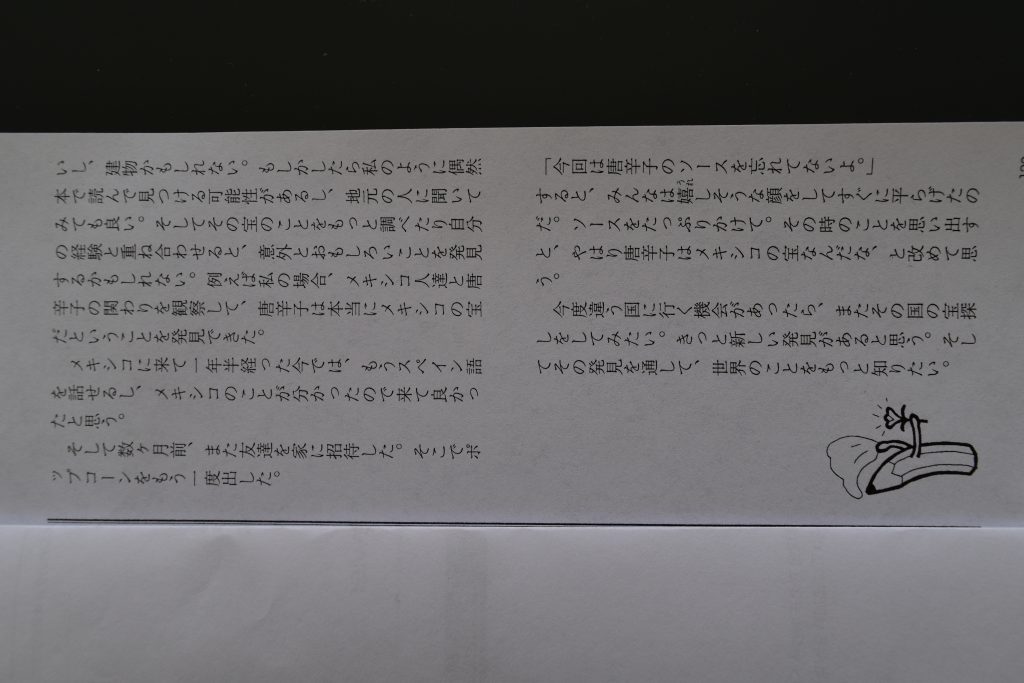 いし、建物かもしれない。もしかしたら私のように偶然
本で読んで見つける可能性があるし、地元の人に聞いて
みても良い。そしてその宝のことをもっと調べたり自分
の経験と重ね合わせると、意外とおもしろいことを発見
するかもしれない。例えば私の場合、メキシコ人達と唐
辛子の関わりを観察して、唐辛子は本当にメキシコの宝
だということを発見できた。
メキシコに来て一年半経った今では、もうスペイン語
を話せるし、メキシコのことが分かったので来て良かっ
たと思う。
そして数ヶ月前、また友達を家に招待した。そこでポ
ップコーンをもう一度出した。
「今回は唐辛子のソースを忘れてないよ。」
うれ
すると、みんなは嬉しそうな顔をしてすぐに平らげたの
だ。ソースをたっぷりかけて。その時のことを思い出す
と、やはり唐辛子はメキシコの宝なんだな、と改めて思
う。
今度違う国に行く機会があったら、またその国の宝探
しをしてみたい。きっと新しい発見があると思う。そし
てその発見を通して、世界のことをもっと知りたい。